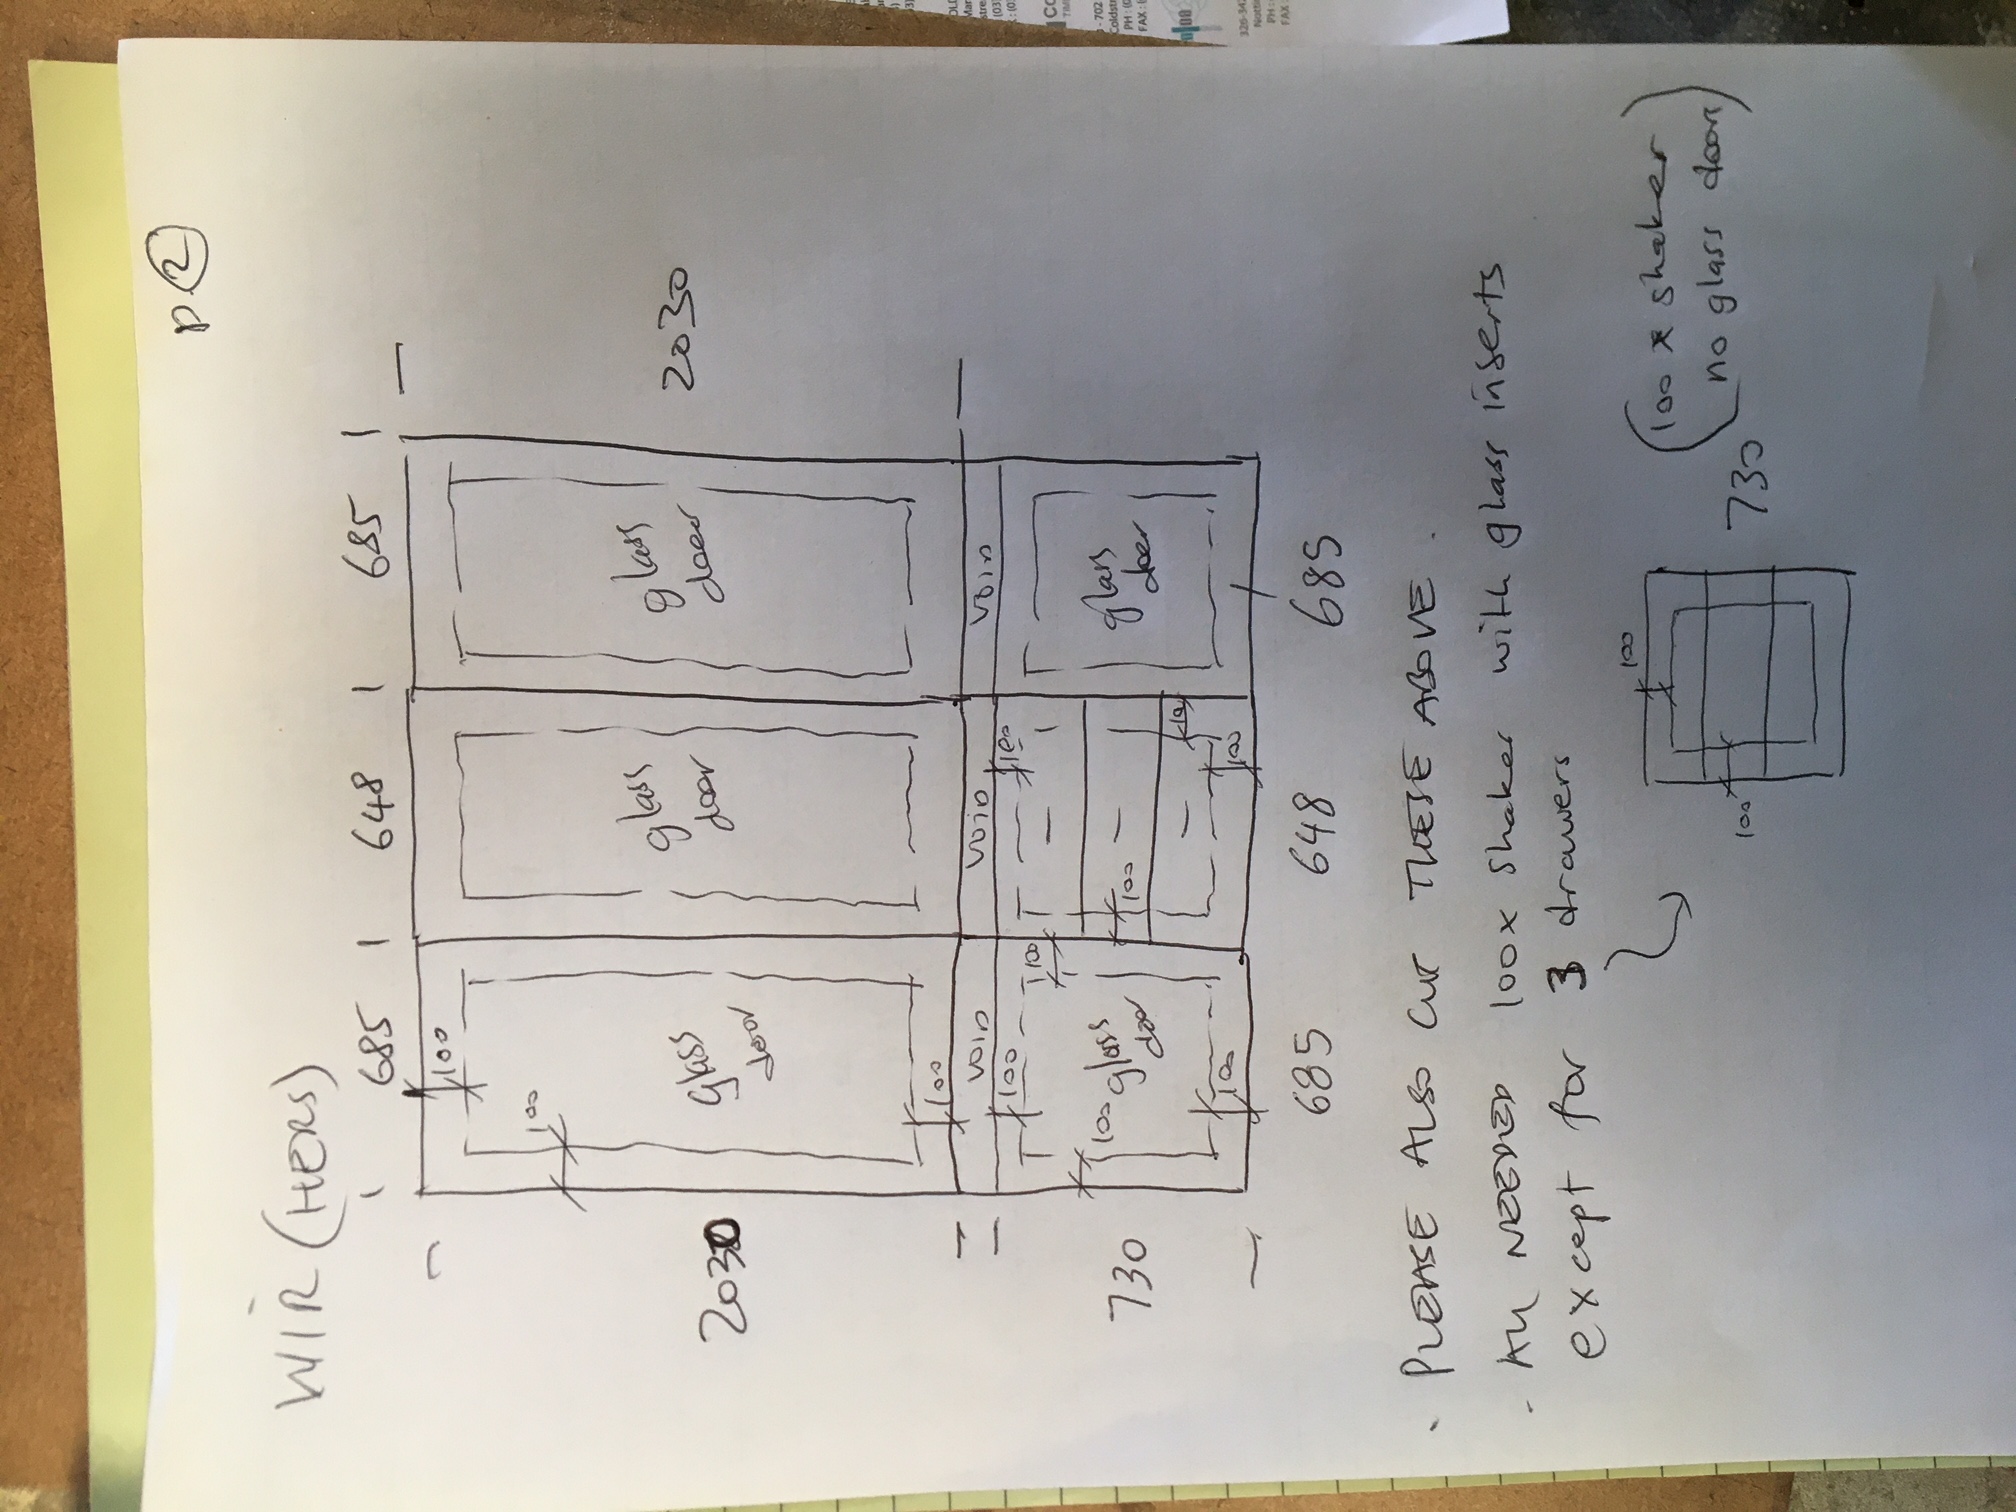 P2
WIR (HERS)
685 648 685
100
100
2030
glass door
glass door
glass door
2030
100
VOID VOID VOID
100
100
100
730
100
glass door
100
glass door
100
100
685 648 685
· PLEASE ALSO CUT THESE ABOVE.
· All NEEDED 100x shaker with glass inserts
except for 3 drawers
100
100
730
(100 x shaker
no glass doors)
326-342
- 702
Coldstr
PH : (0
FAX :
PH :
FAX